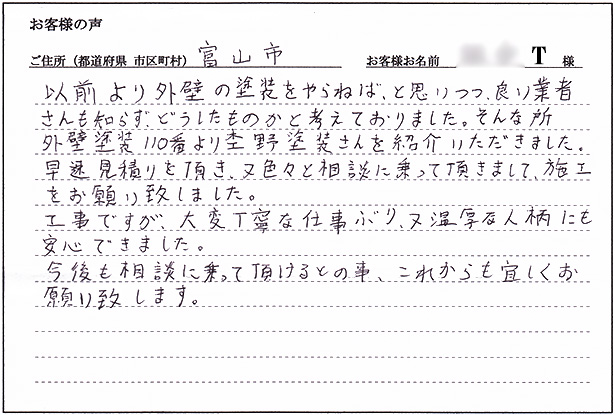 お客様の声
ご住所（都道府県 市区町村） 富山市 お客様お名前 T 様
以前より外壁の塗装をやらねば、と思いつつ、良い業者
さんも知らず、どうしたものかと考えておりました。そんな所
外壁塗装110番より杢野塗装さんを紹介いただきました。
早速見積りを頂き、又色々と相談に乗って頂きまして、施工
をお願い致しました。
工事ですが、大変丁寧な仕事ぶり、又温厚な人柄にも
安心できました。
今後も相談に乗って頂けるとの事、これからも宜しくお
願い致します。